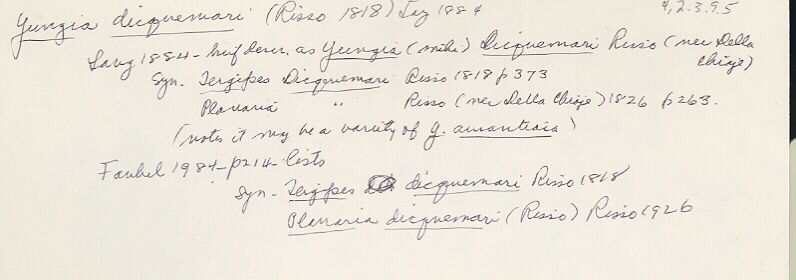 Yungia dicquemari (Risso 1818) Lang 1884
4,2.3.95
Lang 1884 - brief descr. as Yungia (mihi) Dicquemari Risso (nec Della Chiaje)
Syn. Tergipes Dicquemari Risso 1818 p373
Planaria " Risso (nec Della Chiaje) 1826 p263.
(notes it may be a variety of Y. aurantiaca)
Faubel 1984 - p214 - lists
Syn. - Tergipes dicquemari Risso 1818
Planaria dicquemari (Risso) Risso 1926